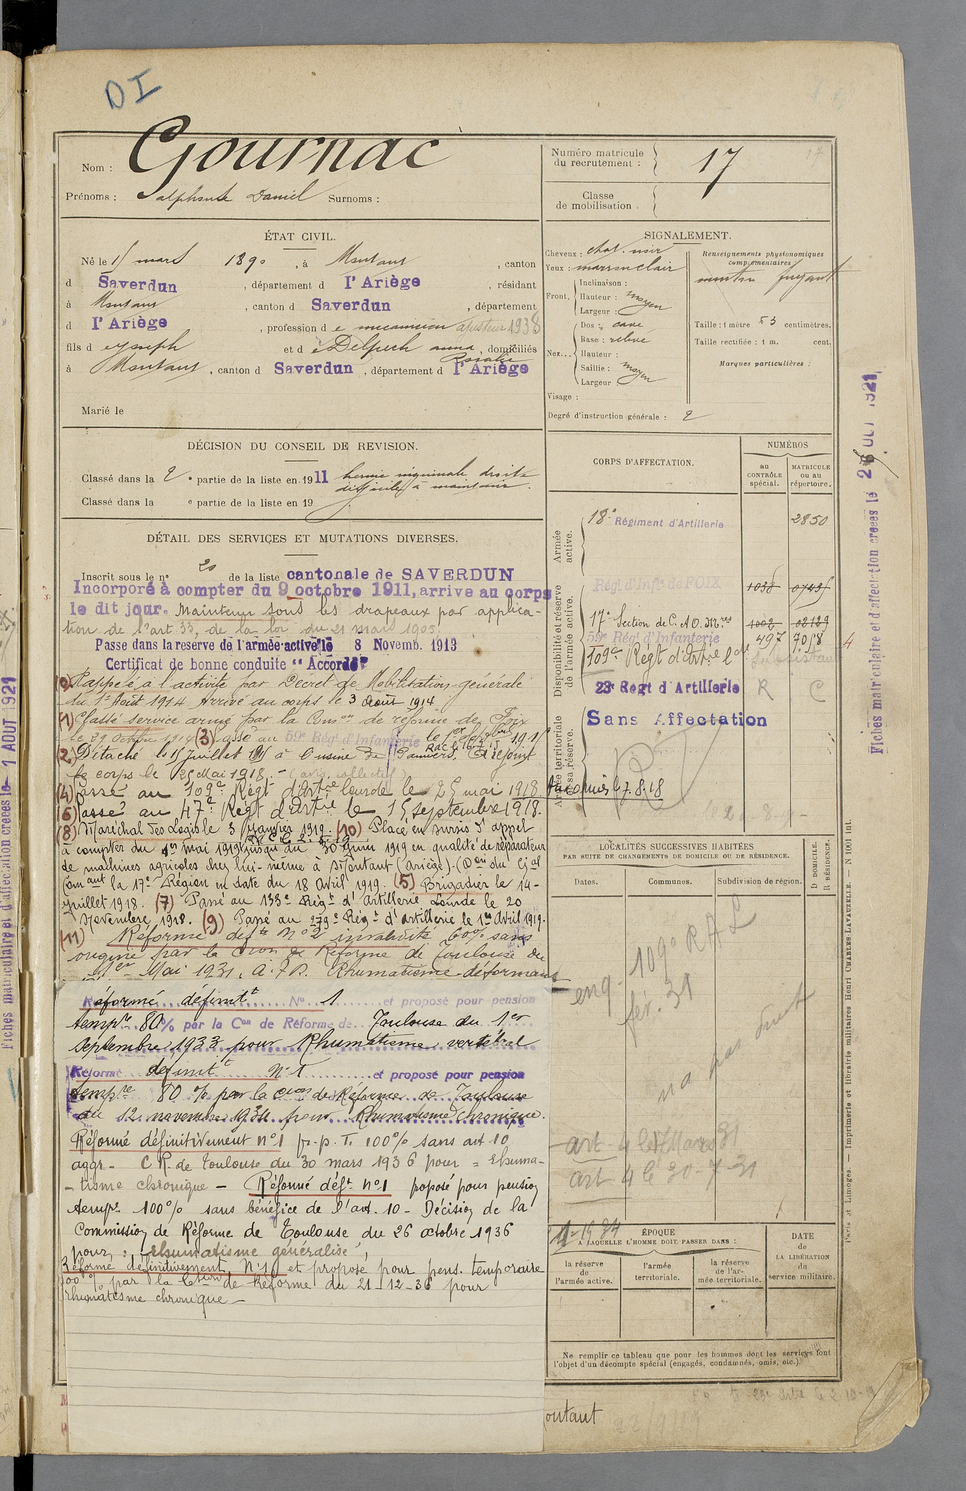 DI
Nom : Gournac
Prénoms : Alphonse Daniel Surnoms :
ÉTAT CIVIL.
Né le 5 mars 1890, à Montaut, canton
d Saverdun, département d l'Ariège, résidant
à Montaut, canton d Saverdun, département
d l'Ariège, profession d e mecanicien ajusteur 1938
fils d e Joseph et d e Delpech anna Rosalie, domiciliés
à Montaut, canton d Saverdun, département d l'Ariège
Marié le
DÉCISION DU CONSEIL DE REVISION.
Classé dans la 2e partie de la liste en 1911 hernie inguinale droite
difficile à maintenir.
Classé dans la e partie de la liste en 19
DÉTAIL DES SERVICES ET MUTATIONS DIVERSES.
Inscrit sous le n° 20 de la liste cantonale de SAVERDUN
Incorporé à compter du 9 octobre 1911, arrive au corps
le dit jour. Maintenu sous les drapeaux par applica-
tion de l'art 33, de la loi du 21 mars 1905
Passe dans la reserve de l'armée active le 8 Novemb. 1913
Certificat de bonne conduite "Accordé"
Rappelé à l'activité par Décret de Mobilisation générale
du 1er Août 1914 Arrivé au corps le 3 Août 1914
(1) Classé service armé par la Comon de réforme de Foix
le 29 octobre 1914 (3) Passé au 59e Rég d'Infanterie le 1er
(2) Détaché le 15 Juillet 1915 à l'usine de Pamiers. A rejoint
le corps le 25 Mai 1918.
(4) Passé au 109e Régt d'Artrie lourde le 25 mai 1918
(6) Passé au 47e Regt d'artrie le 15 septembre 1918.
(8) Maréchal des Logis le 3 Janvier 1919. (10) Placé en sursis d'appel
à compter du 1er mai 1919 jusqu'au 30 Juin 1919 en qualité de réparateur
de machines agricoles chez lui-même à Montaut (Ariège). (Don du Gal
Comant la 17e Région en date du 18 Avril 1919. (5) Brigadier le 14-
Juillet 1918. (7) Passé au 138e Régt d'Artillerie Lourde le 20
Novembre 1918. (9) Passé au 279e Régt d'artillerie le 1er Avril 1919.
(11) Réformé deft N° 2 invalidité 60% sans
origine par la Cion de Réforme de Toulouse du
1er Mai 1931. A.F.D. Rhumatisme déformant
Réformé définitt N° 1 et proposé pour pension
tempre 80% par la Con de Réforme de Toulouse du 1er
septembre 1933 pour Rhumatisme vertébral
Réformé définitt N° 1 et proposé pour pension
tempre 80% par la Cion de Réforme de Toulouse
du 12 novembre 1934 pour Rhumatisme chronique.
Réformé définitivement n°1 p.p.T. 100% sans art 10
aggr. C.R. de Toulouse du 30 mars 1936 pour = Rhuma-
-tisme chronique - Réformé déft N°1 proposé pour pension
tempre 100% sans bénéfice de l'art. 10 - Décision de la
Commission de Réforme de Toulouse du 26 octobre 1936
pour : "Rhumatisme généralisé",
Réformé définitivement N°1 et proposé pour pens. temporaire
100% par la Cssion de Réforme du 21-12-36 pour
rhumatisme chronique -
Numéro matricule
du recrutement : 17
Classe
de mobilisation.
SIGNALEMENT.
Cheveux : chat. noir
Yeux : marron clair
Front. Inclinaison :
Hauteur : moyen
Largeur :
Nez... Dos : cave
Base : relevé
Hauteur :
Saillie : moyen
Largeur
Visage :
Renseignements physionomiques
complémentaires :
menton fuyant
Taille : 1 mètre 53 centimètres.
Taille rectifiée : 1 m. cent.
Marques particulières :
Degré d'instruction générale : 2
CORPS D'AFFECTATION.
NUMÉROS
au
CONTRÔLE
spécial.
MATRICULE
ou au
répertoire.
Armée
active.
18e Régiment d'Artillerie 2850
Disponibilité et réserve
de l'armée active.
Régt d'Infie de FOIX 1038
17e Section de C.O.A.
59e Rég d'Infanterie 497 7018
109e Régt d'artie Lde
23e Regt d'Artillerie R C
Armée territoriale
et sa réserve.
Sans Affectation
LOCALITÉS SUCCESSIVES HABITÉES
PAR SUITE DE CHANGEMENTS DE DOMICILE OU DE RÉSIDENCE.
Dates.
Communes.
Subdivision de région.
D. DOMICILE.
R. RÉSIDENCE.
109e RAL
fév. 31
art 4 le 30-7-31
ÉPOQUE
A LAQUELLE L'HOMME DOIT PASSER DANS :
la réserve
de
l'armée active.
l'armée
territoriale.
la réserve
de l'ar-
mée territoriale.
DATE
de
LA LIBÉRATION
du
service militaire.
Ne remplir ce tableau que pour les hommes dont les services font
l'objet d'un décompte spécial (engagés, condamnés, omis, etc.).
outaut
Fiches matriculaire et d'affectation créées le 26 OCT 1921
Paris et Limoges. — Imprimerie et librairie militaires Henri CHARLES-LAVAUZELLE. — N° 1001 int.
Fiches matriculaire et d'affectation créées le 1 AOUT 1921